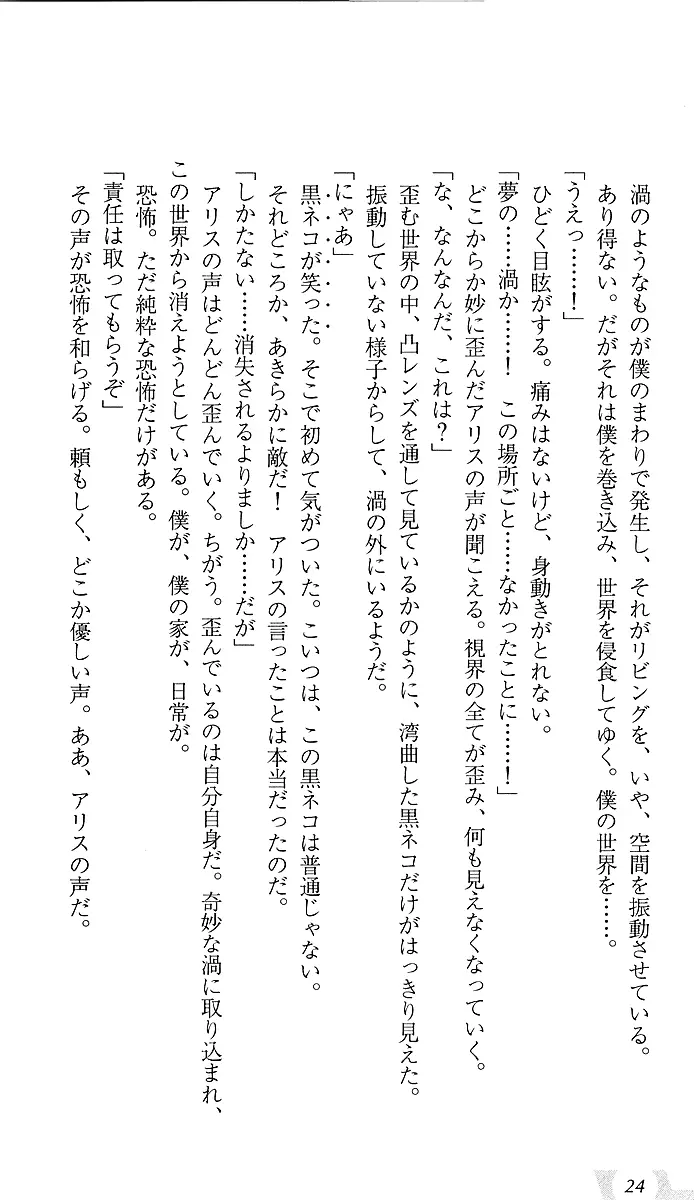 渦のようなものが僕のまわりで発生し、それがリビングを、いや、空間を振動させている。
あり得ない。だがそれは僕を巻き込み、世界を侵食してゆく。僕の世界を……。
「うえっ……！」
ひどく目眩がする。痛みはないけど、身動きがとれない。
「夢の……渦か……！　この場所ごと……なかったことに……！」
どこからか妙に歪んだアリスの声が聞こえる。視界の全てが歪み、何も見えなくなっていく。
「な、なんなんだ、これは？」
歪む世界の中、凸レンズを通して見ているかのように、湾曲した黒ネコだけがはっきり見えた。
振動していない様子からして、渦の外にいるようだ。
「にゃあ」
黒ネコが笑った。そこで初めて気がついた。こいつは、この黒ネコは普通じゃない。
それどころか、あきらかに敵だ！　アリスの言ったことは本当だったのだ。
「しかたない……消失されるよりましか……だが」
アリスの声はどんどん歪んでいく。ちがう。歪んでいるのは自分自身だ。奇妙な渦に取り込まれ、
この世界から消えようとしている。僕が、僕の家が、日常が。
恐怖。ただ純粋な恐怖だけがある。
「責任は取ってもらうぞ」
その声が恐怖を和らげる。頼もしく、どこか優しい声。ああ、アリスの声だ。
24